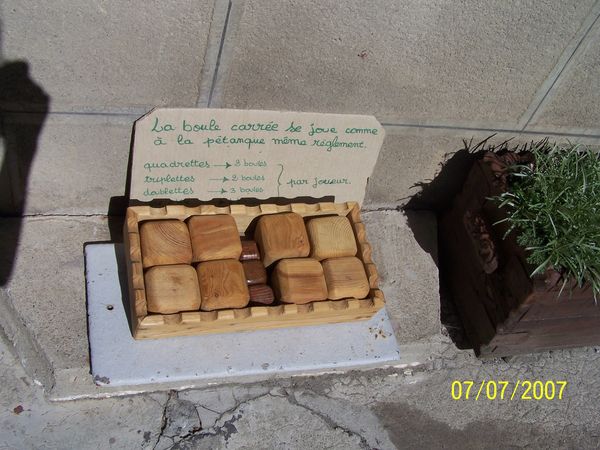 La boule carrée se joue comme
à la pétanque même réglement.
quadrettes → 2 boules
triplettes → 2 boules } par joueur.
doublettes → 3 boules
07/07/2007